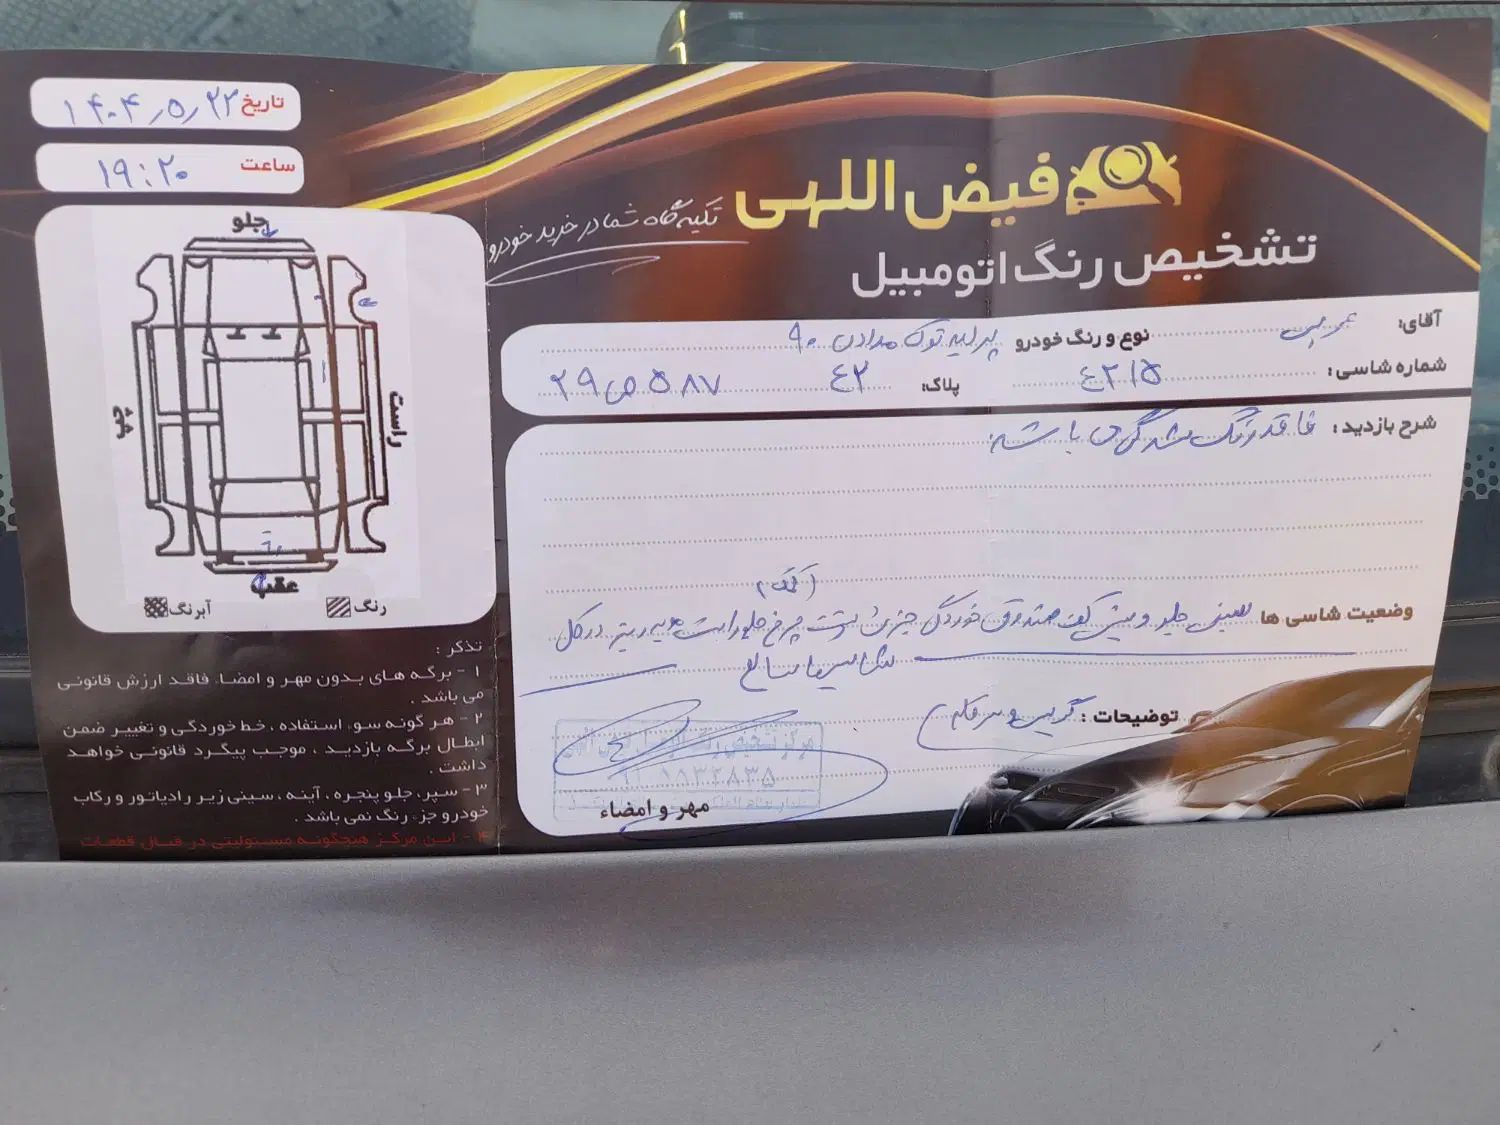 فیض اللهی
تشخیص رنگ اتومبیل
تکیه گاه شما در خرید خودرو
تاریخ ۱۴۰۴٫۵٫۲۲
ساعت ۱۹:۲۰
جلو
راست
چپ
عقب
رنگ
آبرنگ
آقای:
نوع و رنگ خودرو
۹۰
شماره شاسی: ٤٢١٥
پلاک: ٤٢ ۵۸۷ ص ۲۹
شرح بازدید: فاقد رنگ شدگی می باشد
وضعیت شاسی ها سینی جلو و کف صندوق خوردگی جزئی پشت چرخ جلو راست در کل
شاسیها سالم
توضیحات:
مهر و امضاء
تذکر:
۱- برگه های بدون مهر و امضاء، فاقد ارزش قانونی
می باشد.
۲- هر گونه سوء استفاده، خط خوردگی و تغییر ضمن
ابطال برگه بازدید، موجب پیگرد قانونی خواهد
داشت.
۳- سپر، جلو پنجره، آینه، سینی زیر رادیاتور و رکاب
خودرو جزء رنگ نمی باشد.
۴- این مرکز هیچگونه مسئولیتی در قبال قطعات